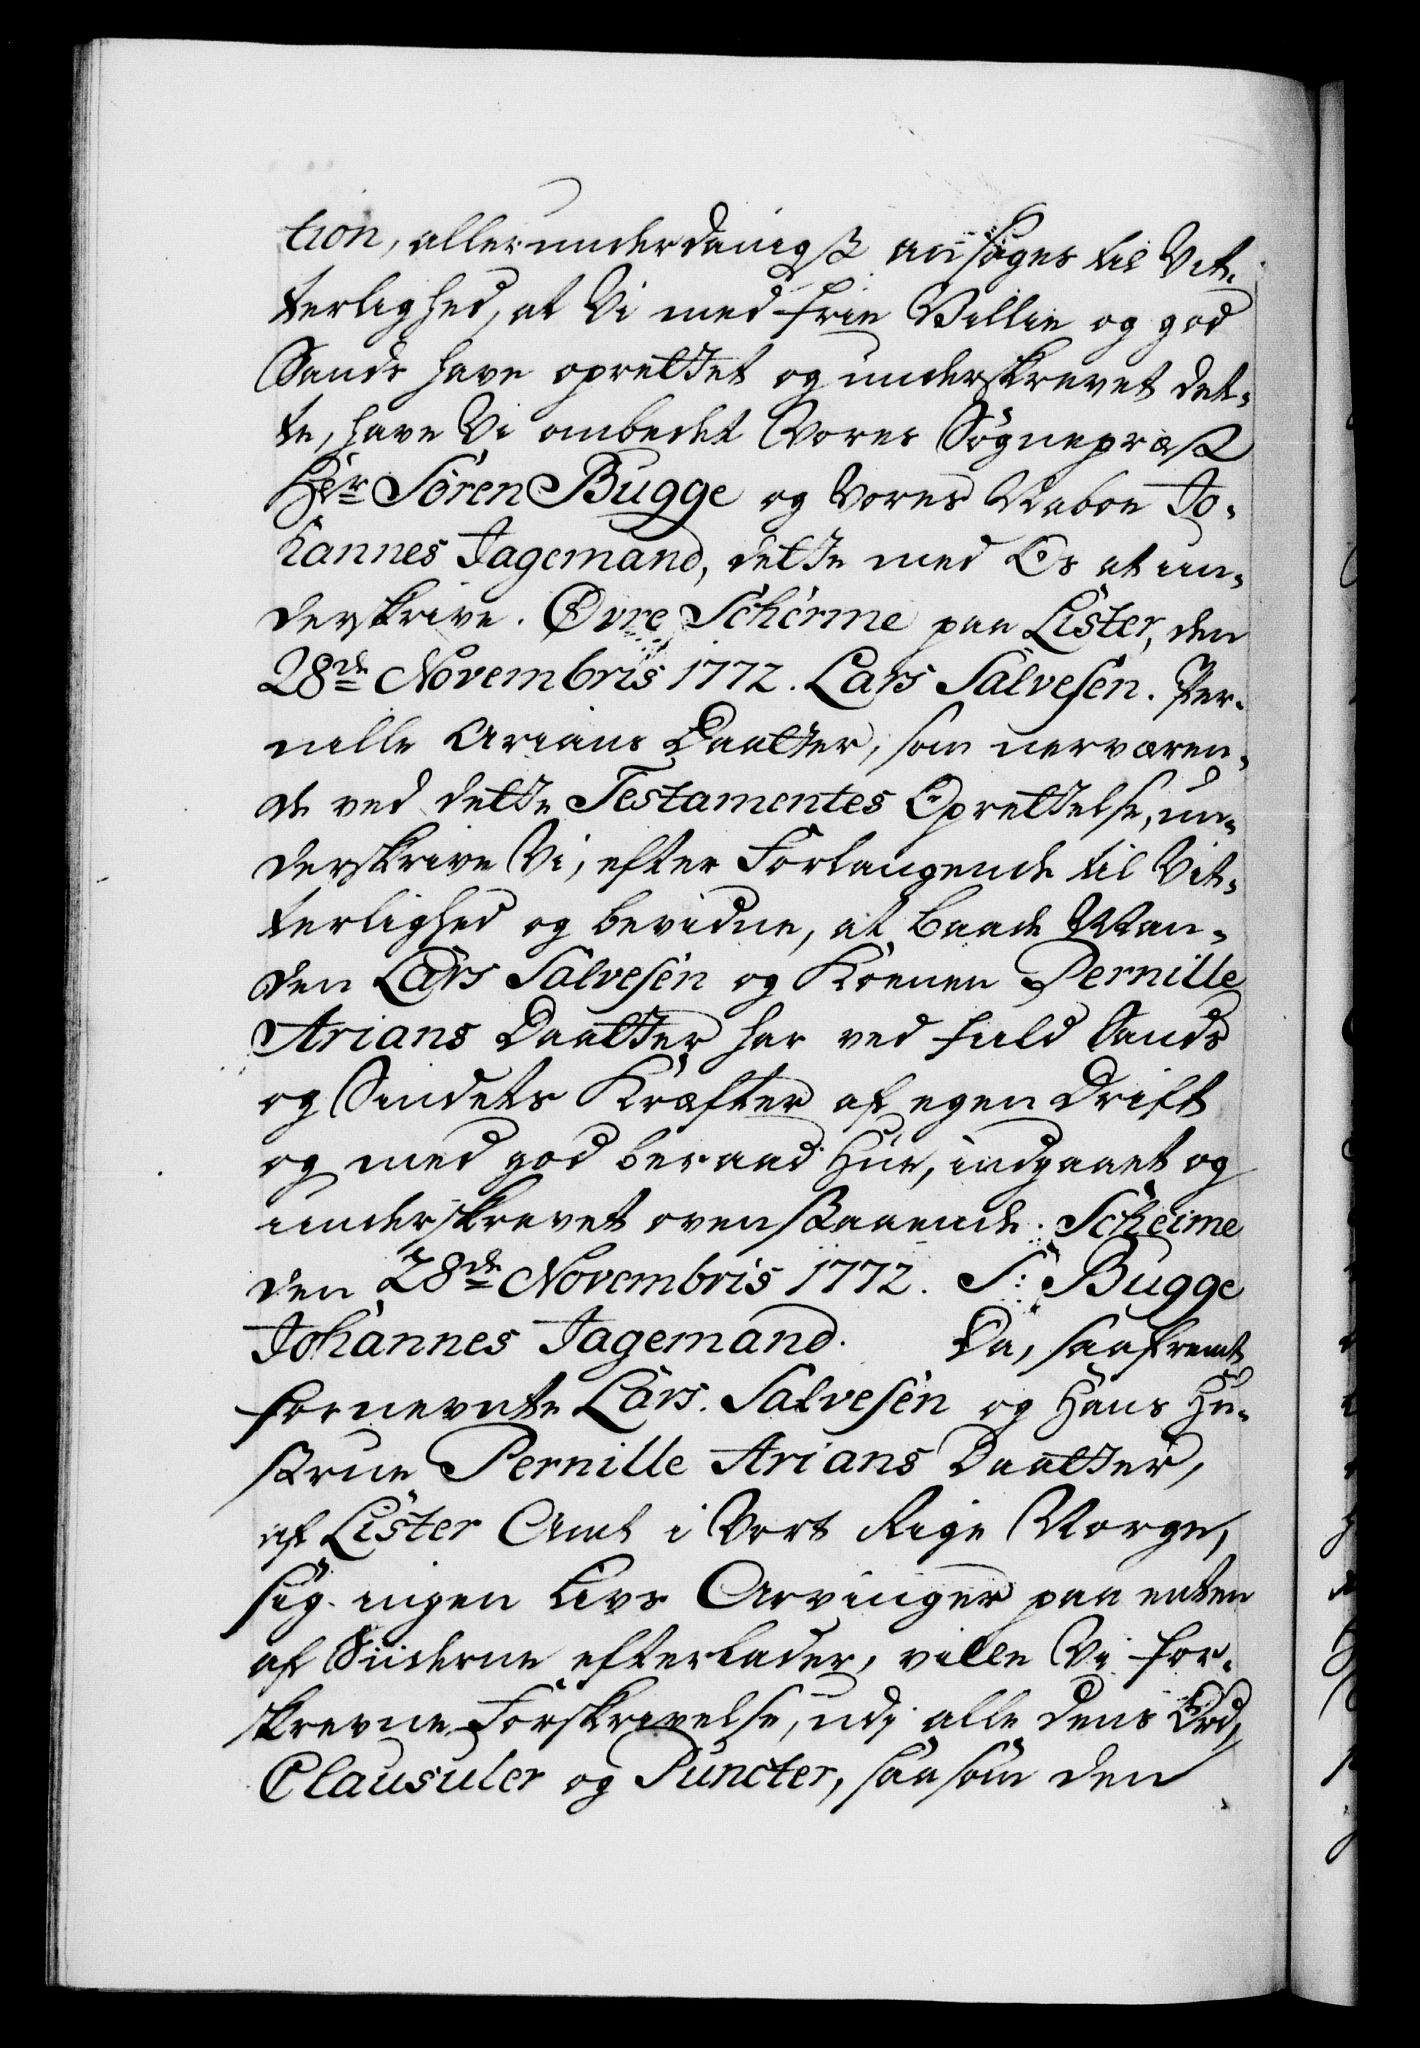 tion, allerunderdanigst ansøges til Vit-
terlighed, at Vi med frie Villie og god
Sands have oprettet og underskrevet det-
te, have Vi ombedet Vores Sognepræst
Hèr Sören Bugge og Vores Naboe Jo-
hannes Jagemand, dette med Os at un-
derskrive. Øvre Scheime paa Lister, den
28de Novembris 1772. Lars Salvesen. Per-
nille Arians Daatter, som nerværen-
de ved dette Testamentes Oprettelse, un-
derskrive Vi, efter Forlangende til Vit-
terlighed og bevidne, at baade Man-
den Lars Salvesen og Konen Pernille
Arians Daatter har ved fuld Sands
og Sindets Kræfter af egen Drift
og med god beraad Hue, indgaaet og
underskrevet ovenstaaende. Scheime
den 28de Novembris 1772. S: Bugge
Johannes Jagemand. Da, saafremt
fornevnte Lars Salvesen og Hans Hu-
strue Pernille Arians Daatter,
af Lister Amt i Vort Rige Norge,
sig ingen Livs Arvinger paa enten
af Siiderne efterlader, ville Vi for-
skrevne Forskrivelse, udj alle dens Ord,
Clausuler og Puncter, saasom den